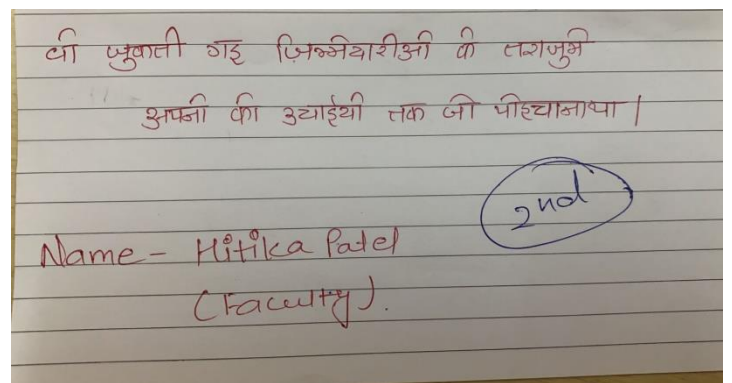 वो झुकती गइ ज़िम्मेदारीओ के तराजुमे
अपनो की उचाईयो तक जो पोहचानाथा |
2nd
Name - Hitika Patel
(Faculty).